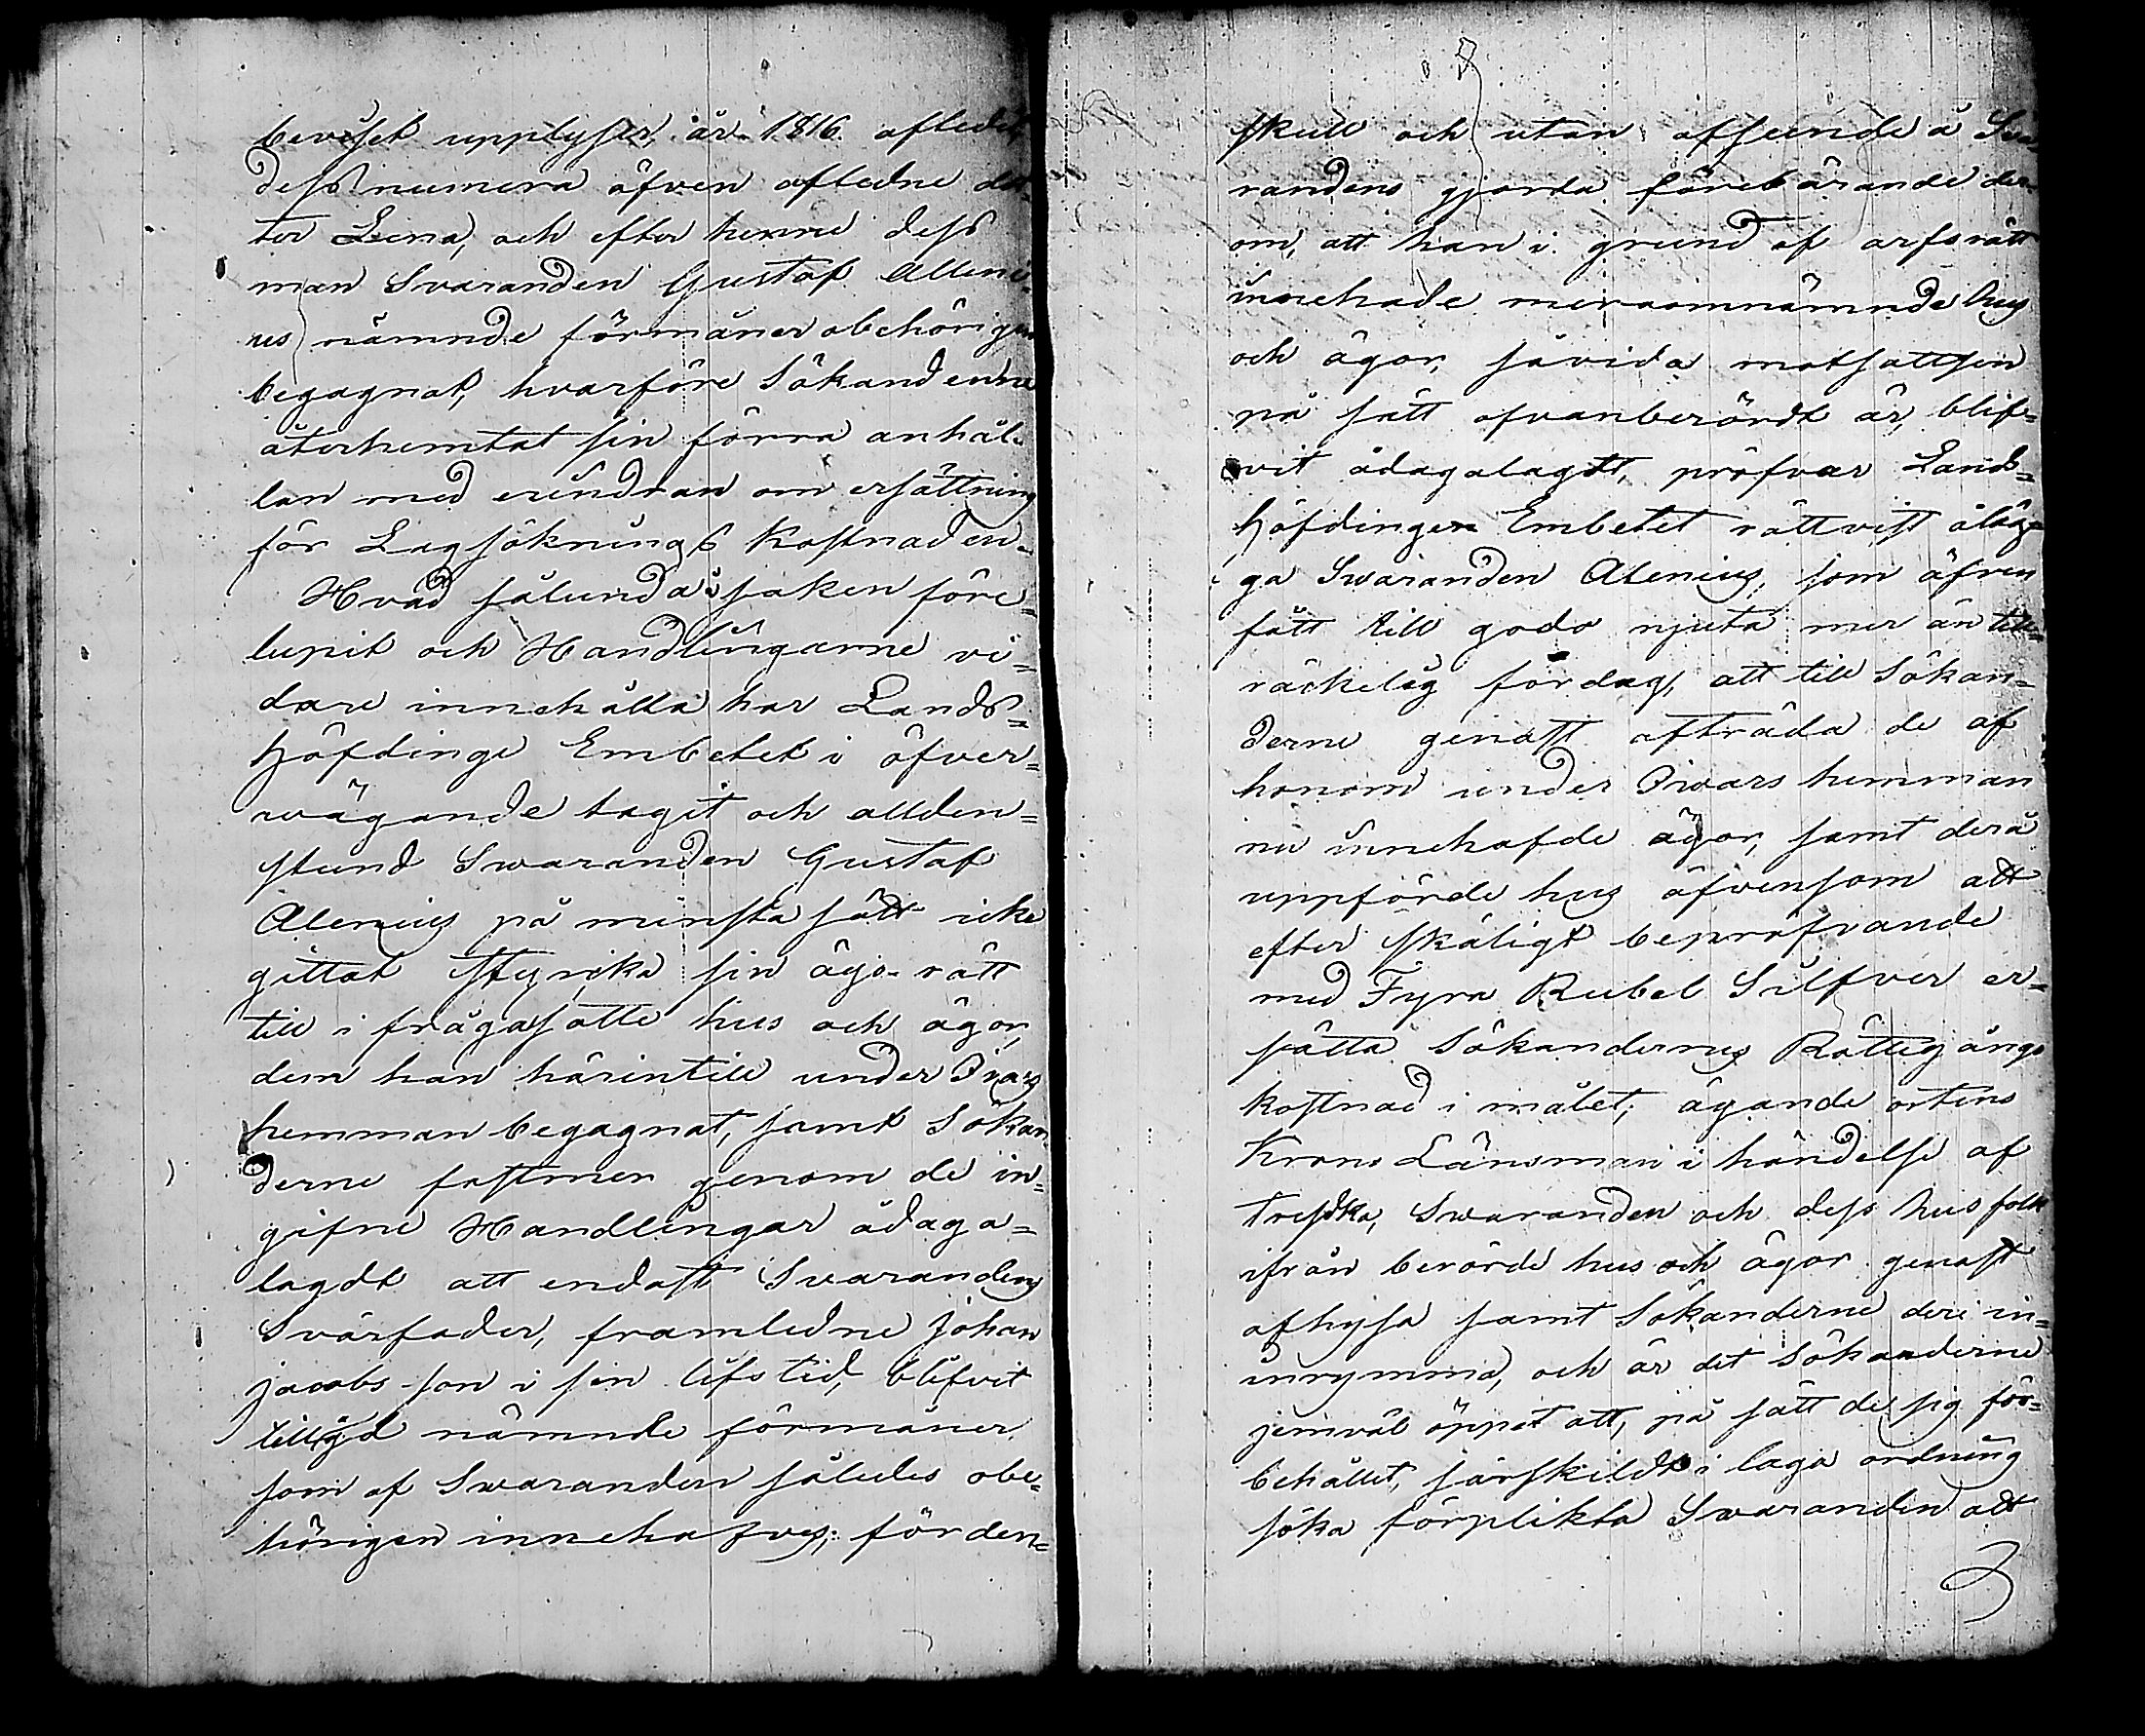 beviset upplyser, år 1816 aflidit,
dess numera äfven aflidne dot¬
ter Lena, och efter henne dess
man Svaranden Gustaf Alleni¬
us nämnde förmåner obehörigen
begagnat, hvarföre Sökandenne
återhemtat sin förra anhål¬
lan med erindran om ersättning
för Lagsöknings kostnaden.
Hvad sålunda i saken före¬
lupit och Handlingarne vi¬
dare innehålla har Lands¬
höfdinge Embetet i öfver¬
vägande tagit och allden¬
stund Swaranden Gustaf
Alenius på minsta sätt icke
gittat styrcka sin ägo-rätt
till i frågasatte hus och ägor,
dem han härintill under Pivars
hemman begagnat, samt Sökan
derne fastmer genom de in¬
gifne Handlingar ådaga¬
lagdt att endast Svarandens
Svärfader, framledne Johan
Jacobs-son i sin lifstid, blifvit
tillägd nämnde förmåner
som af Swaranden således obe¬
hörigen innehafves; för den¬
skull och utan afseende å Sva
randens gjorda förebärande der¬
om, att han i grund af arfsrätt
innehade meraomnämnde hus
och ägor, såvida motsattsen
på sätt ofvanberördt är, blif¬
vit ådagalagdt, pröfvar Lands¬
höfdinge Embetet rättvist åläg¬
ga Swaranden Alenius, som äfven
fått till godo njuta mer än till¬
räckelig fördag, att till Sökan¬
derne genast afträda de af
honom under Pivars hemman
nu innehafde ägor, samt derå
uppförde hus äfvensom att
efter skäligt bepröfvande
med Fyra Rubel Silfver er¬
sätta Sökandernes Rättegångs
kostnad i målet; ägande ortens
Krono Länsman i händelse af
tresdka, Swaranden och dess husfolk
ifrån berörde hus och ägor genast
afhysa samt Sökanderne deri in¬
inrymma, och är det Sökanderne
jemväl öppet att, på sätt de sig för¬
behållit, särskildt i laga ordning
söka förplikta Swaranden att